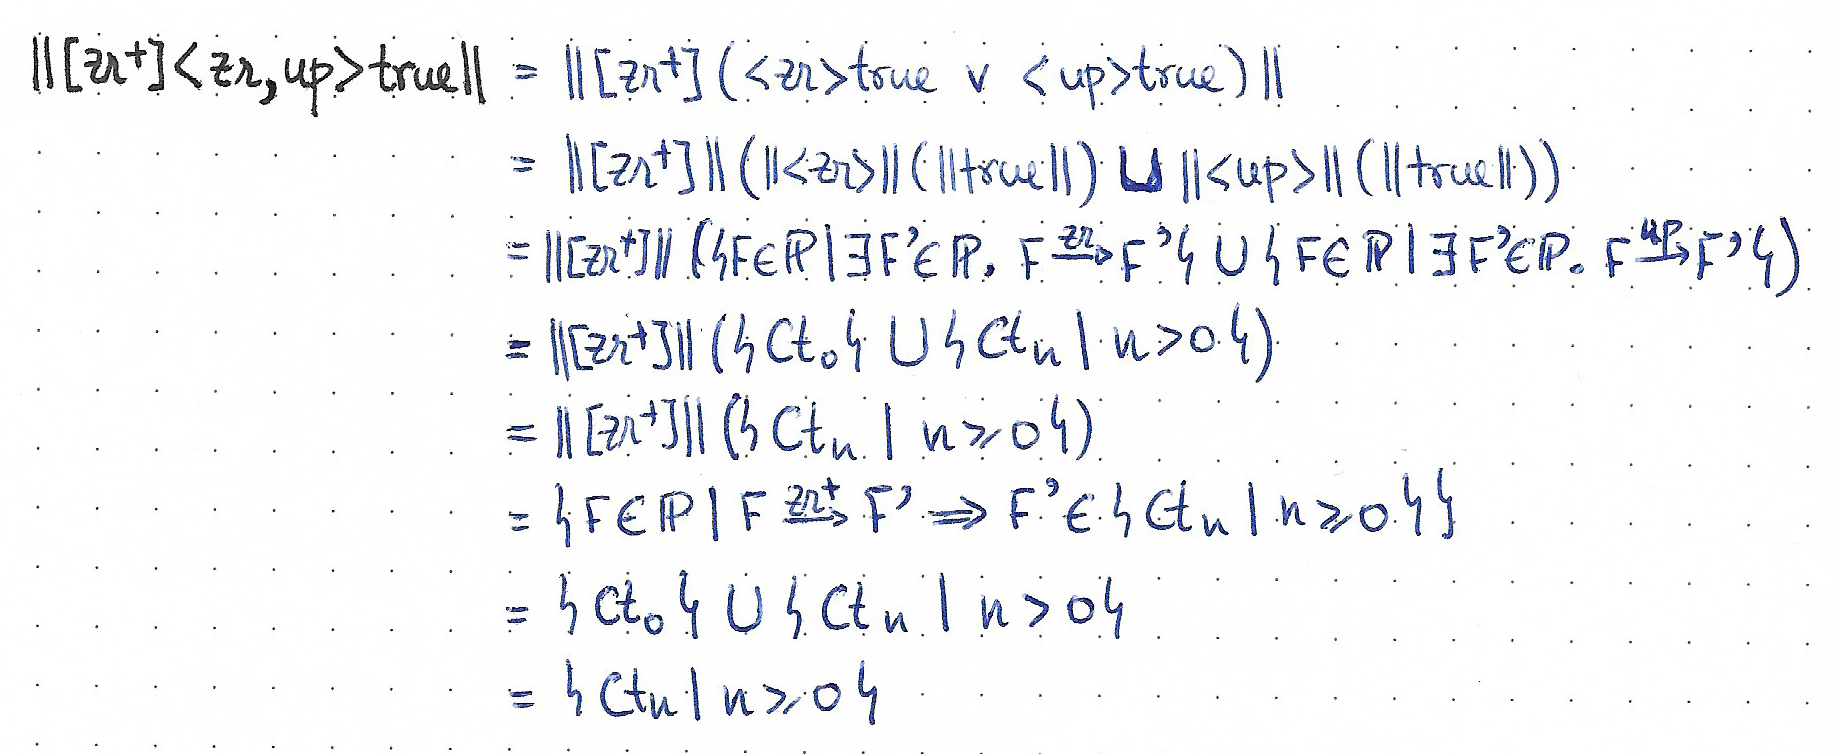 ||[zr⁺]<zr,up>true|| = ||[zr⁺](<zr>true ∨ <up>true)||
= ||[zr⁺]||(||<zr>||(||true||) ∪ ||<up>||(||true||))
= ||[zr⁺]||({F∈ℙ | ∃F'∈ℙ. F -zr→ F'} ∪ {F∈ℙ | ∃F'∈ℙ. F -up→ F'})
= ||[zr⁺]||({Ct₀} ∪ {Ctₙ | n>0})
= ||[zr⁺]||({Ctₙ | n≥0})
= {F∈ℙ | F -zr⁺→ F' ⇒ F'∈{Ctₙ | n≥0}}
= {Ct₀} ∪ {Ctₙ | n>0}
= {Ctₙ | n≥0}